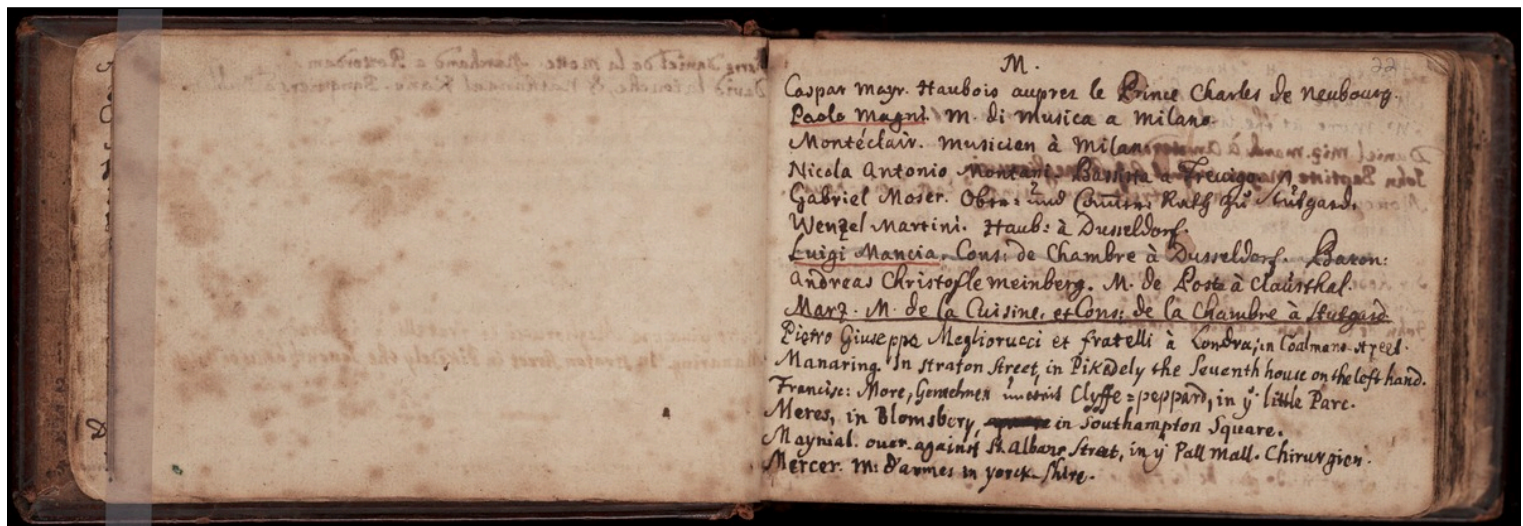 M.
22
Caspar Mayr. Haubois auprez le Prince Charles de Neubourg.
Paolo Magni. M. di Musica a Milano.
Montéclair. Musicien à Milan.
Nicola Antonio Montani. Bassista a Trevigo
Gabriel Moser. Obrr: und Rath zu Stutgard.
Wenzel Martini. Haub: à Dusseldorf.
Luigi Mancia. Cons: de Chambre à Dusseldorf. Baron:
Andreas Christofle Meinberg. M. de Poste à Clausthal.
Marz. M. de la Cuisine, et Cons: de la Chambre à Stutgard
Pietro Giuseppe Megliorucci et fratelli à Londra, in Coalmans-
Manaring. In straton street, in Pikadely the Seventh house on the left hand.
Francisc: More, Clyffe=peppard, in yͤ little Parc.
Meres, in Blomsbery, in Southampton Square.
Maynial. over against St. Albans Street, in yͤ Pall Mall. Chirurgien.
Mercer. M: d'armes in yorck-shire.